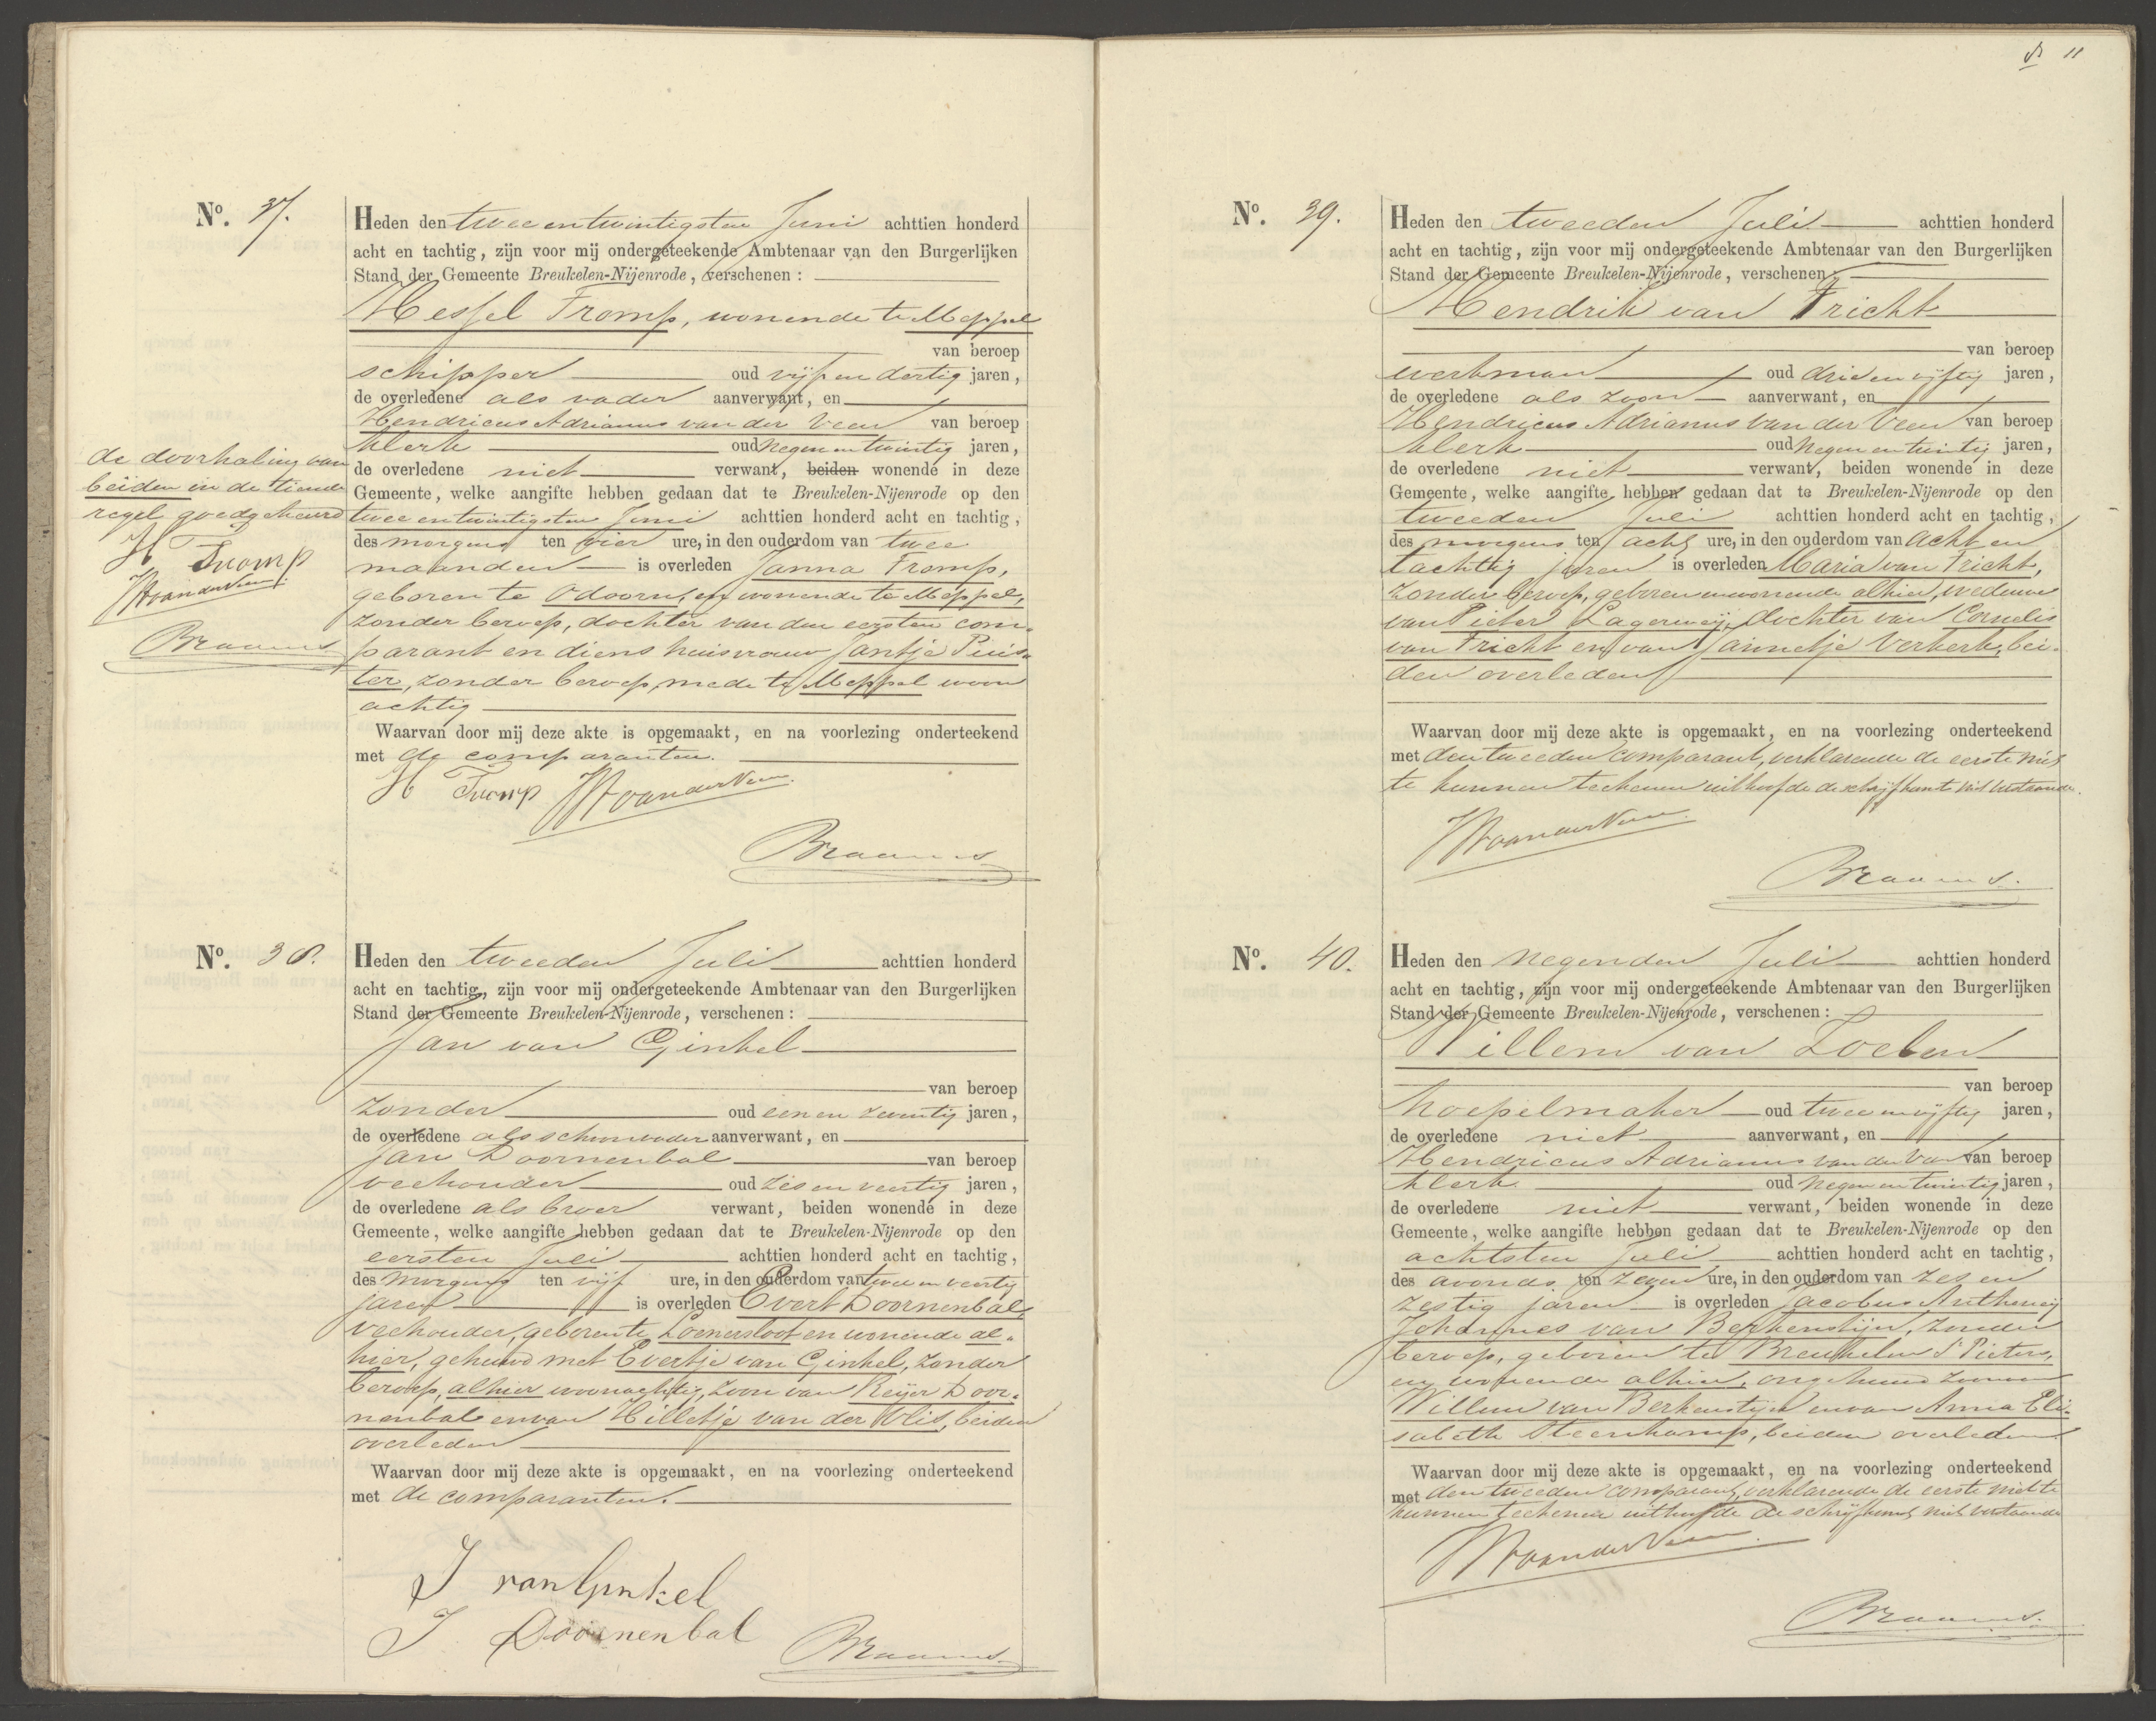 No. 37.
Heden den twee en twintigsten Juni achttien honderd
acht en tachtig, zijn voor mij ondergeteekende Ambtenaar van den Burgerlijken
Stand der Gemeente Breukelen-Nijenrode, verschenen:
Hessel Tromp, wonende te Meppel
van beroep
schipper oud vijf en dertig jaren,
de overledene als vader aanverwant, en
Hendricus Adrianus van der Veen van beroep
klerk oud negen en twintig jaren,
de overledene niet verwant, beiden wonende in deze
Gemeente, welke aangifte hebben gedaan dat te Breukelen-Nijenrode op den
twee en twintigsten Juni achttien honderd acht en tachtig,
des morgens ten vier ure, in den ouderdom van twee
maanden is overleden Janna Tromp,
geboren te Odoorn, en wonende te Meppel,
zonder beroep, dochter van den eersten com-
parant en diens huisvrouw Jantje Puis-
ter, zonder beroep, mede te Meppel woon
achtig
Waarvan door mij deze akte is opgemaakt, en na voorlezing onderteekend
met de comparanten.
H Tromp HAvanderVeen
Braams
de doorhaling van
beiden in de tiende
regel goedgekeurd
H Tromp
HAvanderVeen
Braams
No. 38.
Heden den tweeden Juli achttien honderd
acht en tachtig, zijn voor mij ondergeteekende Ambtenaar van den Burgerlijken
Stand der Gemeente Breukelen-Nijenrode, verschenen:
Jan van Ginkel
van beroep
zonder oud een en zeventig jaren,
de overledene als schoonvader aanverwant, en
Jan Doornenbal van beroep
veehouder oud zes en veertig jaren,
de overledene als broer verwant, beiden wonende in deze
Gemeente, welke aangifte hebben gedaan dat te Breukelen-Nijenrode op den
eersten Juli achttien honderd acht en tachtig,
des morgens ten vijf ure, in den ouderdom van twee en veertig
jaren is overleden Evert Doornenbal,
veehouder, geboren te Loenersloot en wonende al-
hier, gehuwd met Evertje van Ginkel, zonder
beroep, alhier woonachtig, zoon van Reijer Door-
nenbal en van Hilletje van der Vlis, beiden
overleden
Waarvan door mij deze akte is opgemaakt, en na voorlezing onderteekend
met de comparanten.
J van Ginkel
J Doornenbal
Braams
11
No. 39.
Heden den tweeden Juli achttien honderd
acht en tachtig, zijn voor mij ondergeteekende Ambtenaar van den Burgerlijken
Stand der Gemeente Breukelen-Nijenrode, verschenen:
Hendrik van Tricht
van beroep
werkman oud drie en vijftig jaren,
de overledene als zoon aanverwant, en
Hendricus Adrianus van der Veen van beroep
klerk oud negen en twintig jaren,
de overledene niet verwant, beiden wonende in deze
Gemeente, welke aangifte hebben gedaan dat te Breukelen-Nijenrode op den
tweeden Juli achttien honderd acht en tachtig,
des morgens ten acht ure, in den ouderdom van acht en
tachtig jaren is overleden Maria van Tricht,
zonder beroep, geboren en wonende alhier, weduwe
van Pieter Lagerweij, dochter van Cornelis
van Tricht en van Jannetje Verkerk, bei-
den overleden
Waarvan door mij deze akte is opgemaakt, en na voorlezing onderteekend
met den tweeden comparant, verklarende de eerste niet
te kunnen teekenen uit hoofde de schrijfkunst niet verstaande.
HAvanderVeen
Braams.
No. 40.
Heden den negenden Juli achttien honderd
acht en tachtig, zijn voor mij ondergeteekende Ambtenaar van den Burgerlijken
Stand der Gemeente Breukelen-Nijenrode, verschenen:
Willem van Zoelen
van beroep
hoepelmaker oud twee en vijftig jaren,
de overledene niet aanverwant, en
Hendricus Adrianus van der Veen van beroep
klerk oud negen en twintig jaren,
de overledene niet verwant, beiden wonende in deze
Gemeente, welke aangifte hebben gedaan dat te Breukelen-Nijenrode op den
achtsten Juli achttien honderd acht en tachtig,
des avonds ten zeven ure, in den ouderdom van zes en
zestig jaren is overleden Jacobus Anthonij
Johannes van Berkenstijn, zonder
beroep, geboren te Breukelen St Pieters,
en wonende alhier, ongehuwd zoon van
Willem van Berkenstijn en van Anna Eli-
sabeth Steenkamp, beiden overleden
Waarvan door mij deze akte is opgemaakt, en na voorlezing onderteekend
met den tweeden comparant, verklarende de eerste niet te
kunnen teekenen uit hoofde de schrijfkunst niet verstaande
HAvanderVeen
Braams.